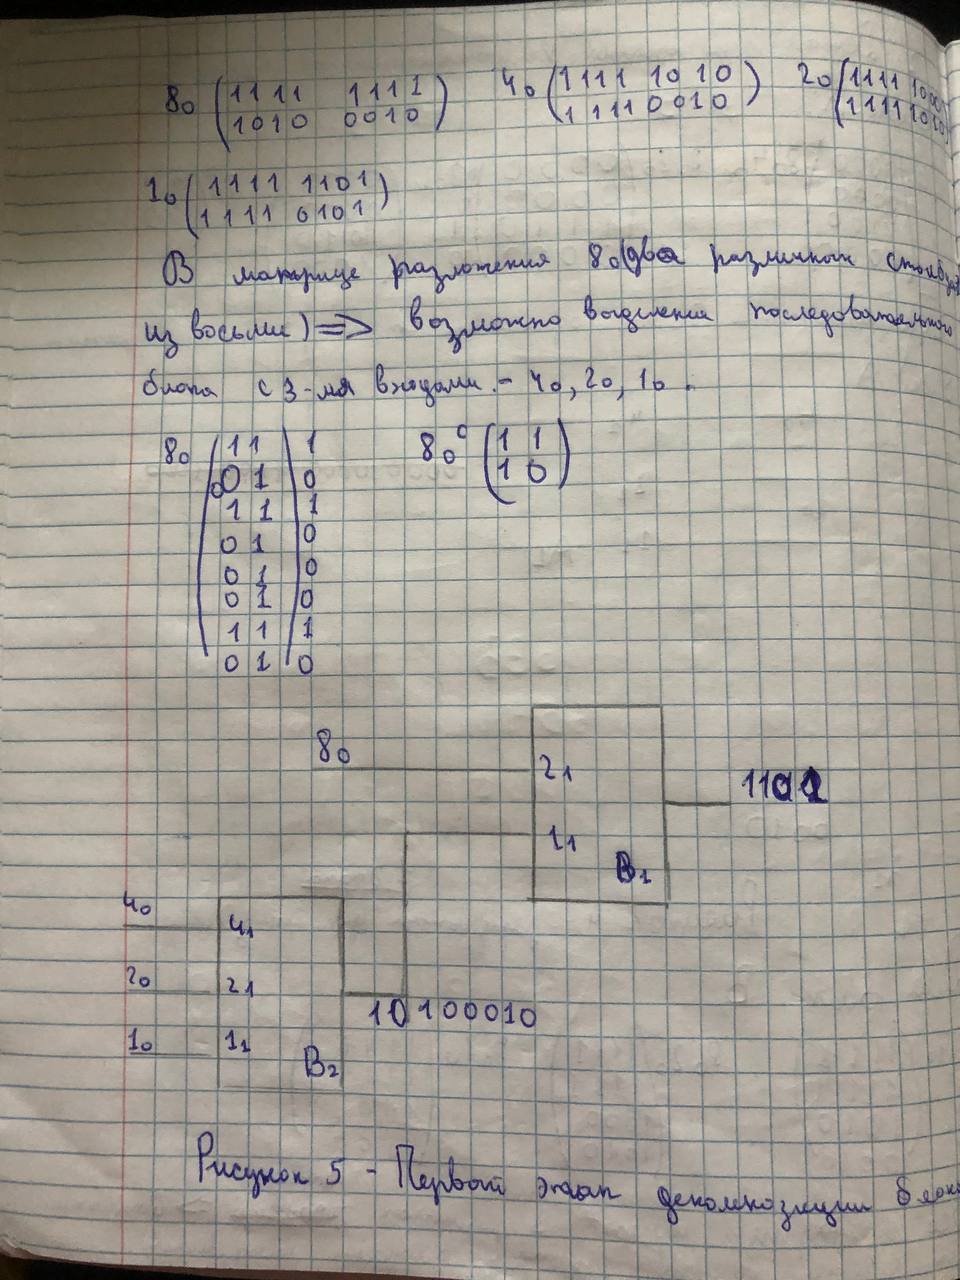 8₀ (1111 1111) 4₀ (1111 1010) 2₀ (1111 100
1010 0010 1111 0010 1111 1010
1₀ (1111 1101)
1111 0101
В матрице разложения 8₀ (два различных столбца
из восьми) => возможно выделения последовательного
блока с 3-мя входами - 4₀, 2₀, 1₀.
8₀ (11 | 1 8₀⁰ (1 1)
01 | 0 1 0
11 | 1
01 | 0
01 | 0
01 | 0
11 | 1
01 | 0
8₀ 2₁ 11
1₁
B₁
4₀ 4₁
2₀ 2₁ 10100010
1₀ 1₁
B₂
Рисунок 5 - Первый этап декомпозиции блока